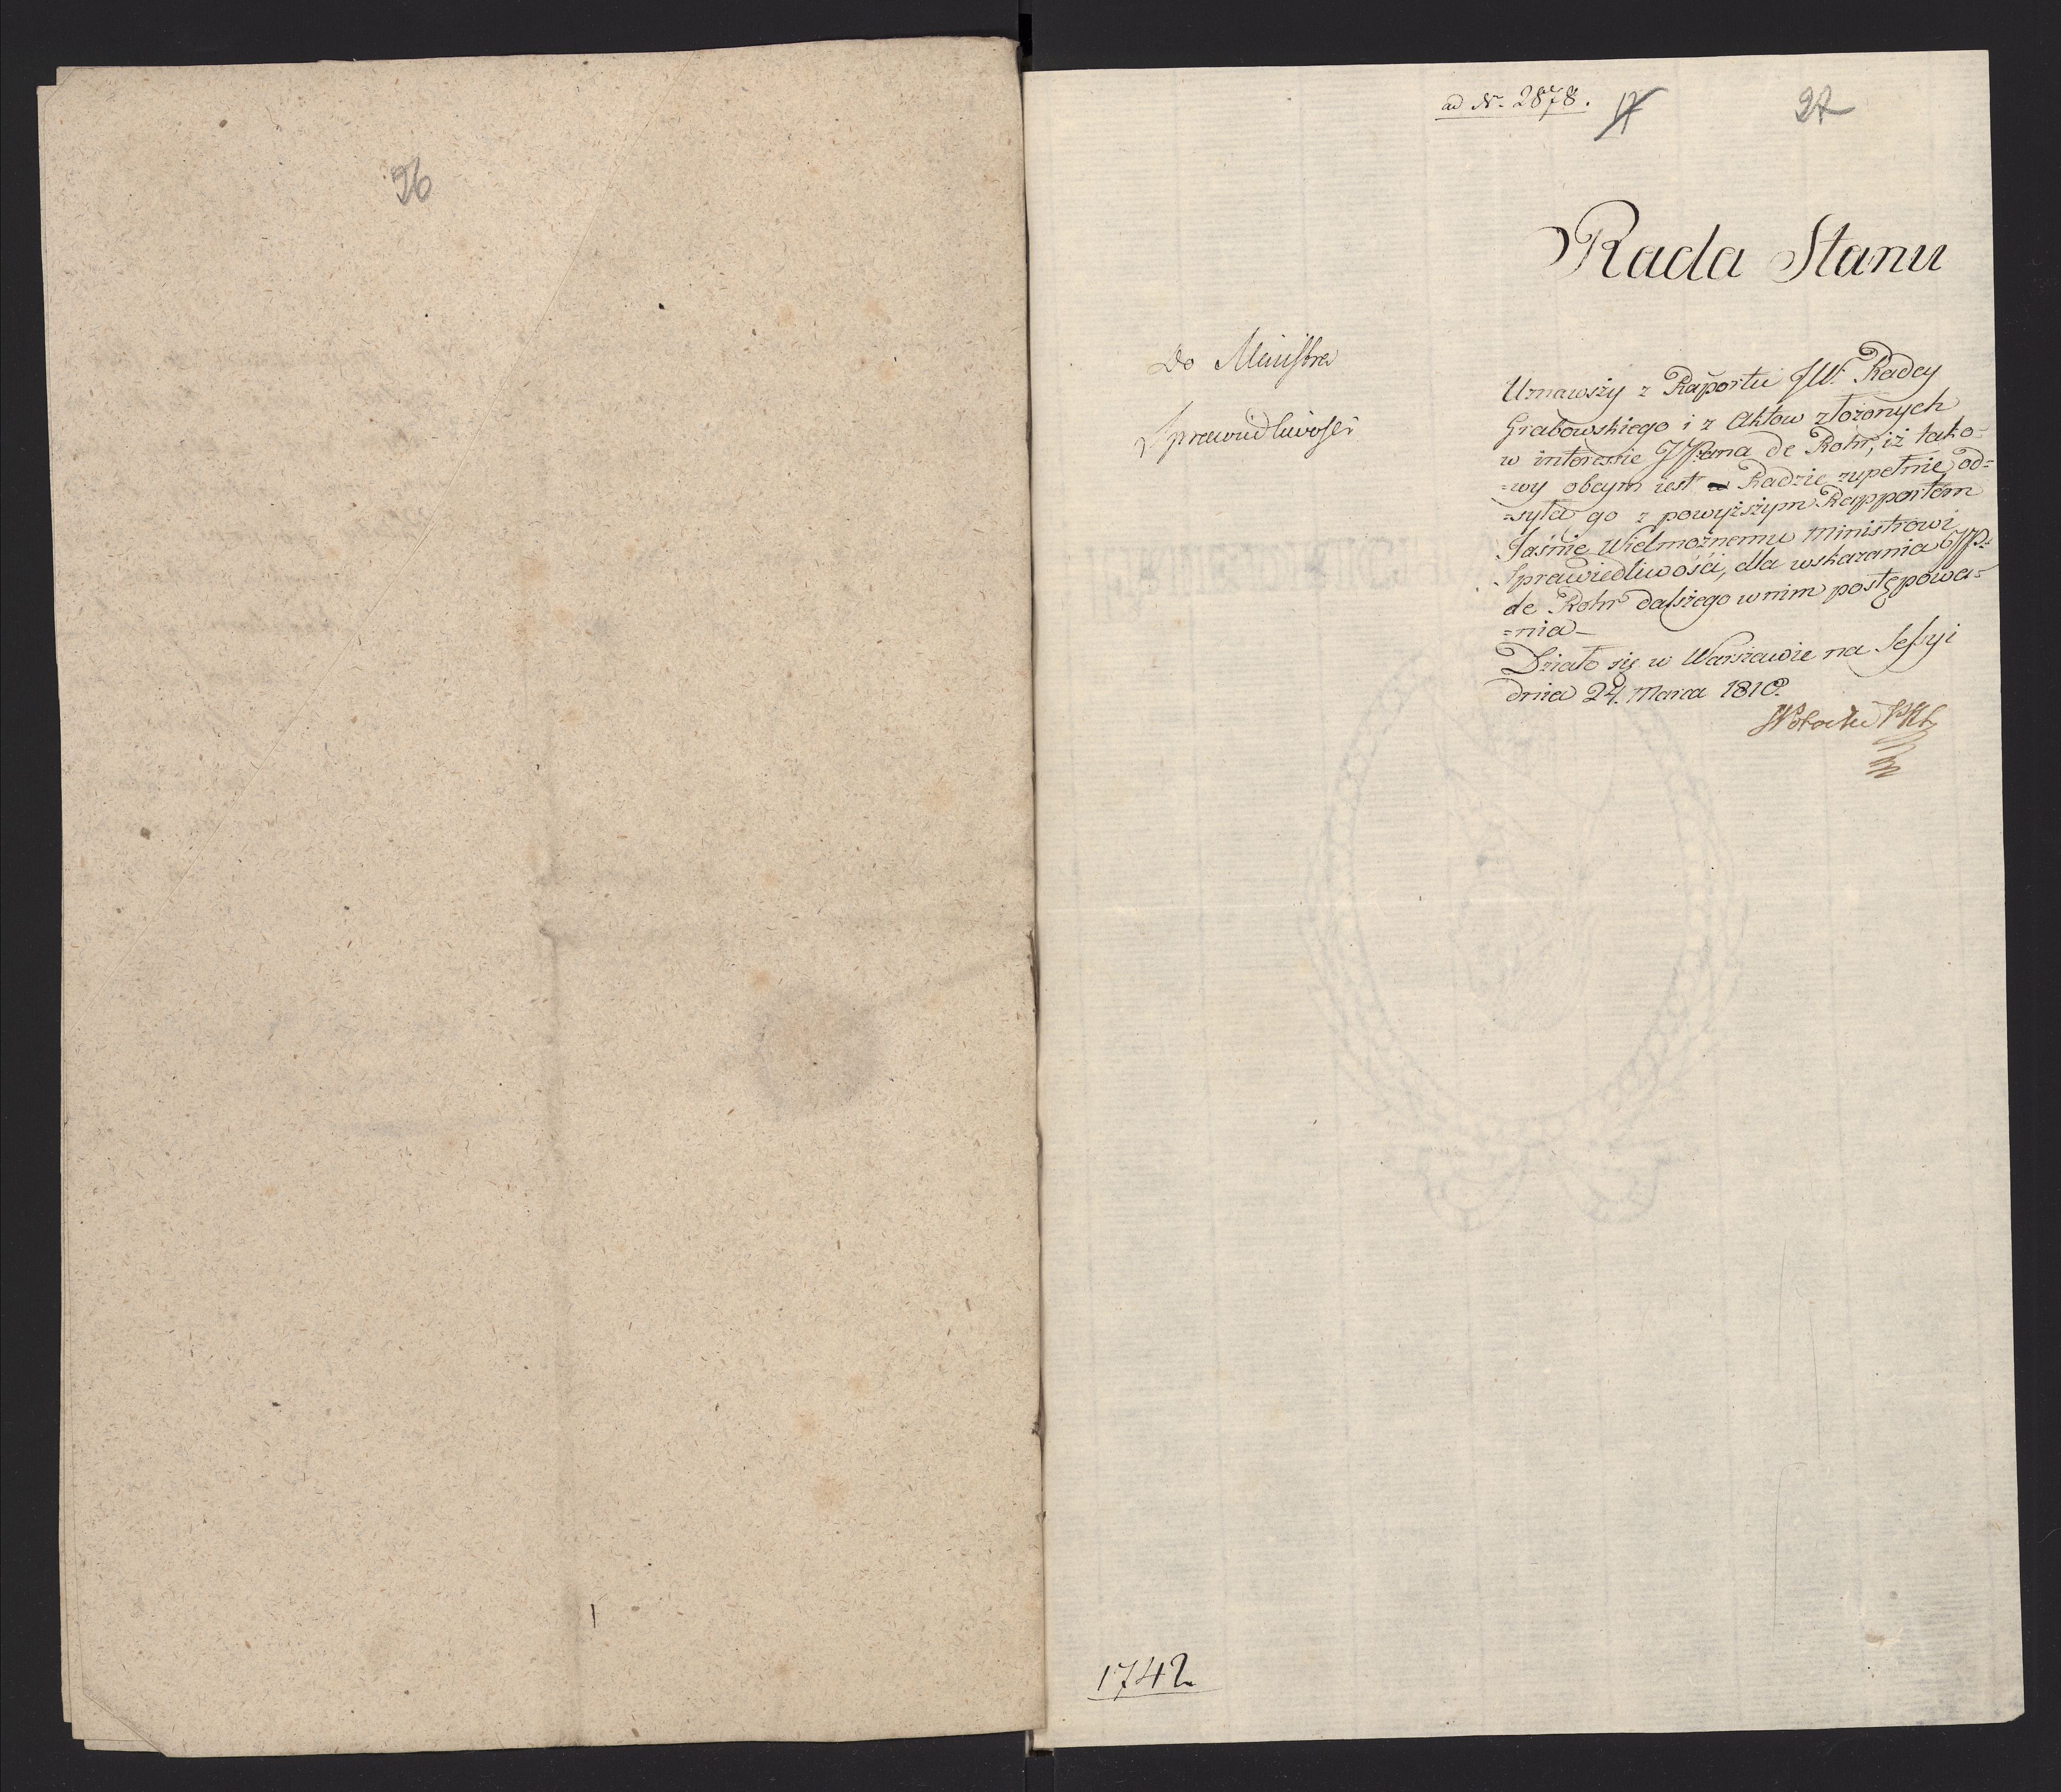 96
ad Nr. 2878.
17
97
Rada Stanu
Do Ministra
Sprawiedliwości
Uznawszy z Raportu JW. Radcy
Grabowskiego i z Aktow złożonych
w interessie JPana de Rohr, iż tako-
=wy obcym iest Radzie zupełnie, od=
=syła go z powyższym Rapportem
Jaśnie Wielmożnemu Ministrowi
Sprawiedliwości, dla wskazania JP:
de Rohr dalszego w nim postępowa=
=nia –
Działo się w Warszawie na Sessyi
dnia 24. Marca 1810.
1742